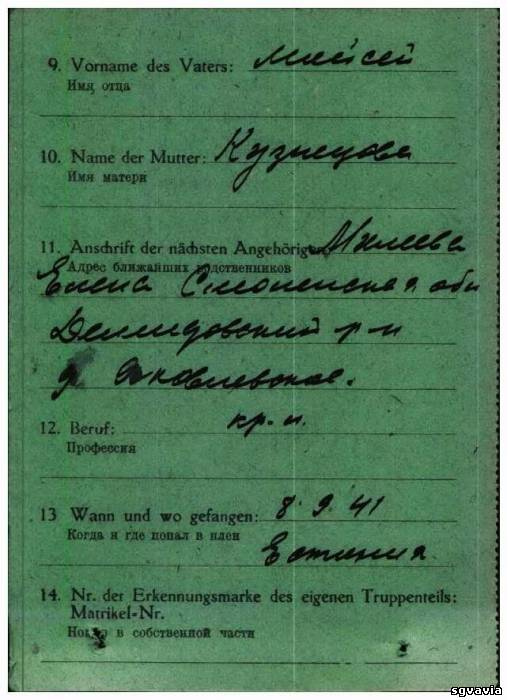 9. Vorname des Vaters: Мойсей
Имя отца
10. Name der Mutter: Кузнецова
Имя матери
11. Anschrift der nächsten Angehörigen
Адрес ближайших родственников
Елена Смоленская обл
Демидовский р-н
д Яковлевское.
12. Beruf: кр-н.
Профессия
13 Wann und wo gefangen: 8.9.41
Когда и где попал в плен
Естиния
14. Nr. der Erkennungsmarke des eigenen Truppenteils:
Matrikel-Nr.
в собственной части
sgvavia